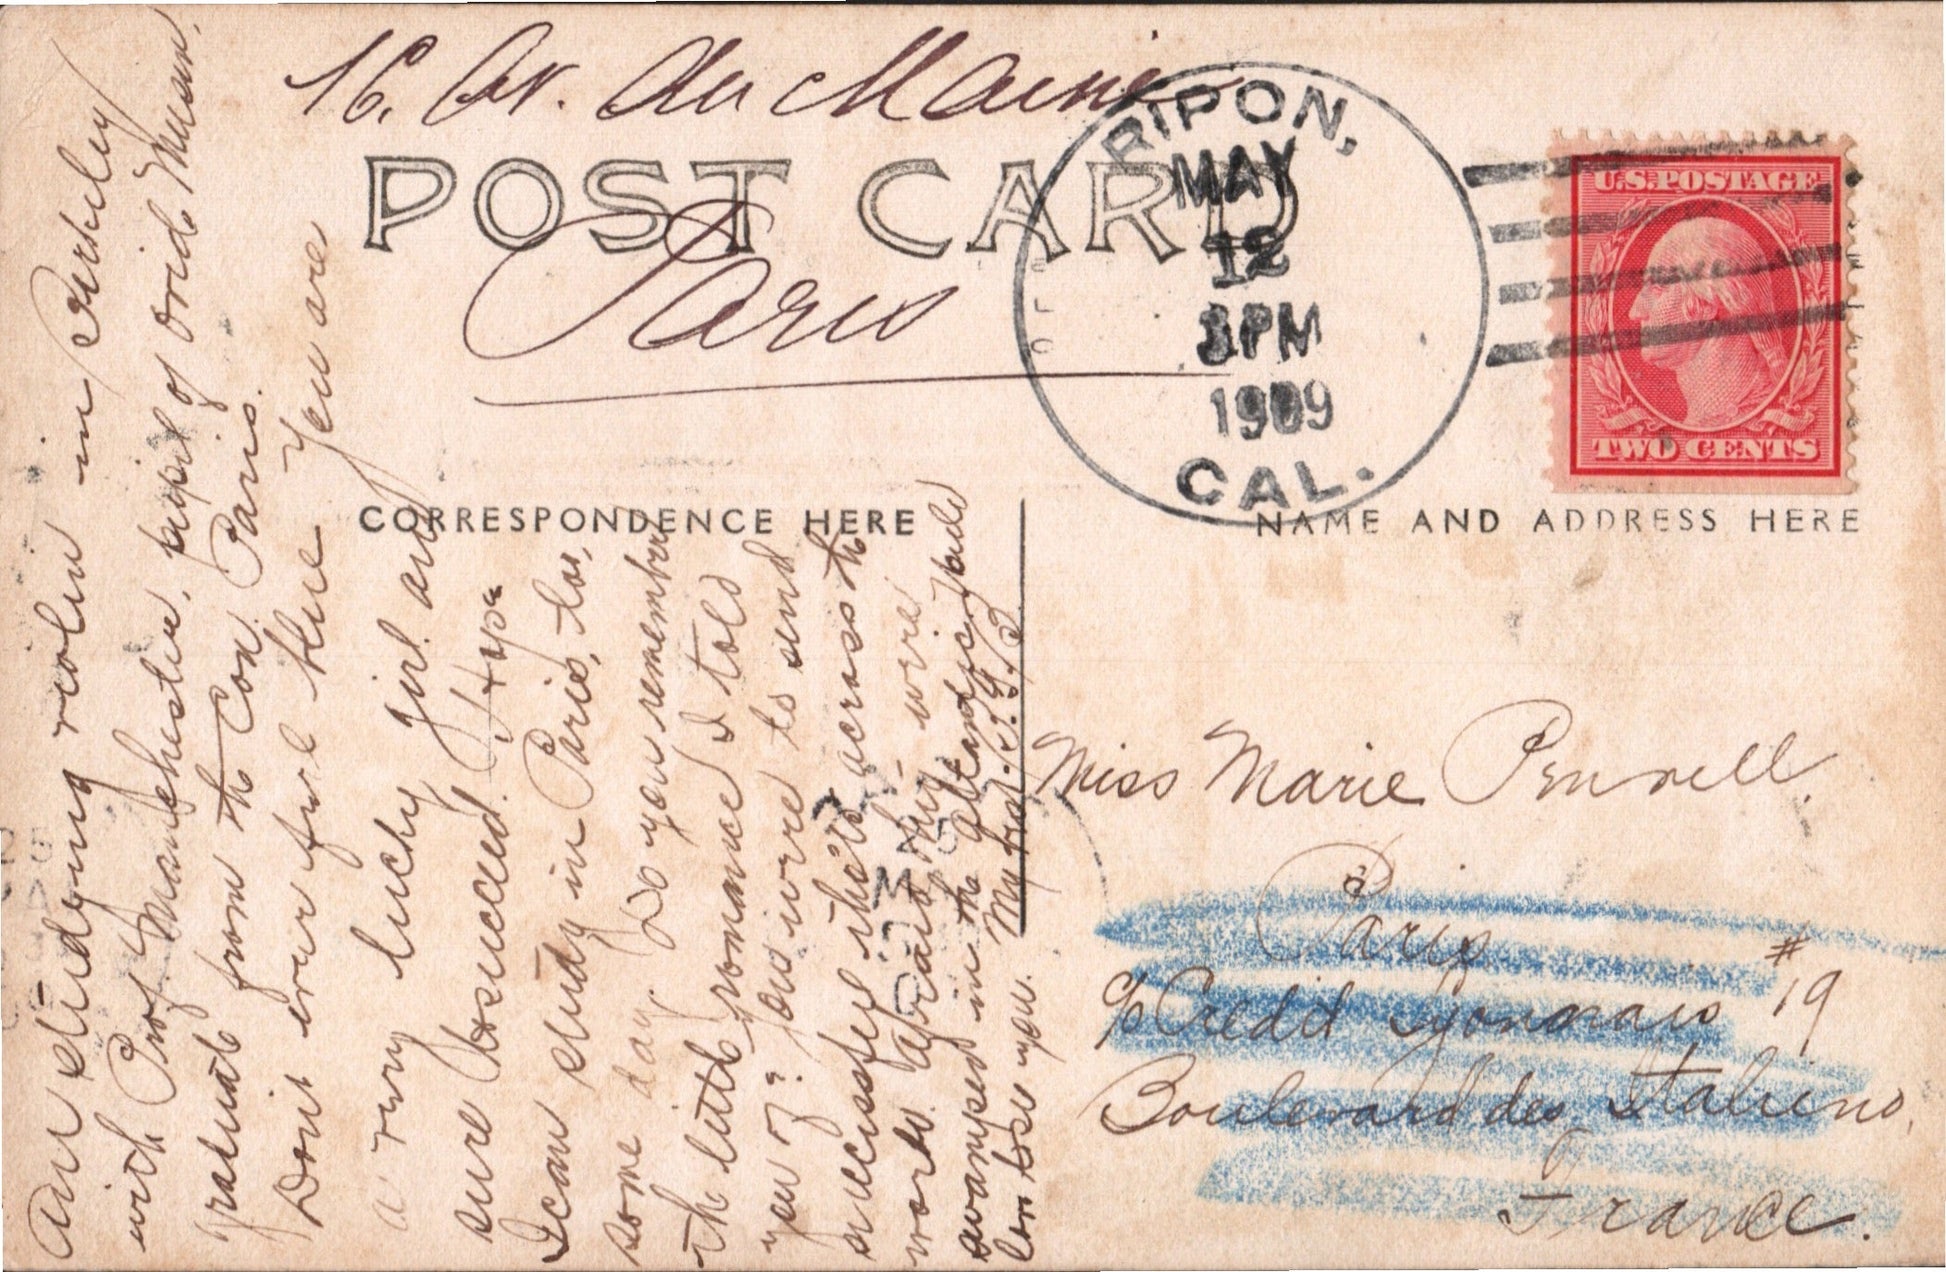 16. Av. du Maine
POST CARD
Paris
RIPON,
MAY
12
3 PM
1909
CAL.
U.S. POSTAGE
TWO CENTS
CORRESPONDENCE HERE
NAME AND ADDRESS HERE
Am studying violin in Berkeley
with Prof. Manchester, pupil of Ovid Musin,
graduate from the Con. Paris.
Don't ever feel blue You are
a very lucky girl and
sure to succeed. I hope
I can study in Paris, too,
some day. Do you remember
the little romance I told
you of? You were to send
successful thots across the
world. Afraid they were
swamped in the Atlantic. Could
len lose you.
My best
Miss Marie Pennell.
Paris
c/o Credit Lyonnais # 19
Boulevard des Italiens,
France.